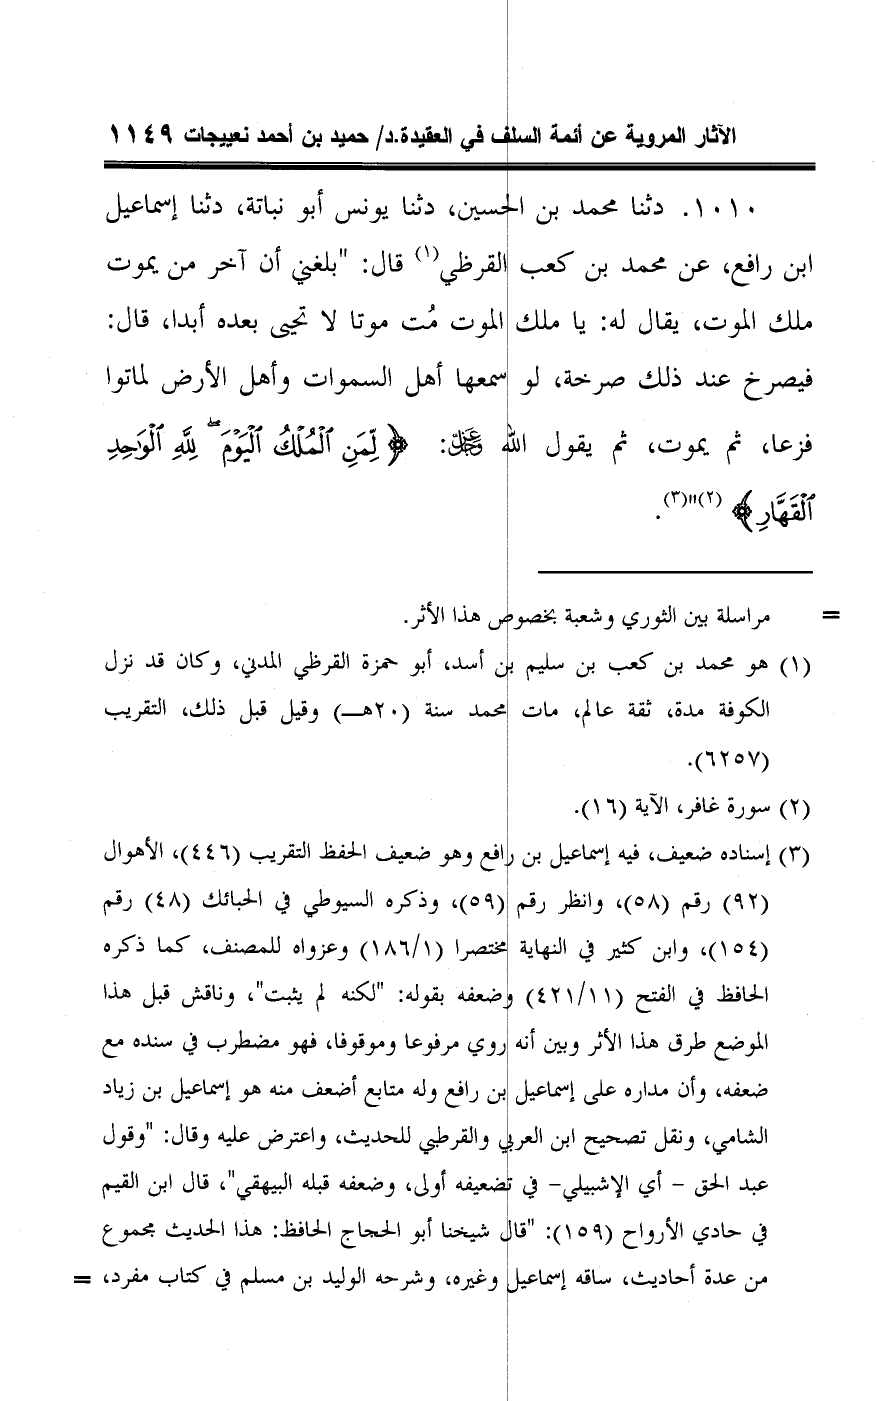 الآثار المروية عن أئمة السلف في العقيدة.د/ حميد بن أحمد نعييجات ١١٤٩
١٠١٠. دثنا محمد بن الحسين، دثنا يونس أبو نباتة، دثنا إسماعيل
ابن رافع، عن محمد بن كعب القرظي(١) قال: "بلغني أن آخر من يموت
ملك الموت، يقال له: يا ملك الموت مُت موتا لا تحيى بعده أبدا، قال:
فيصرخ عند ذلك صرخة، لو سمعها أهل السموات وأهل الأرض لماتوا
فزعا، ثم يموت، ثم يقول الله عز وجل: ﴿لِّمَنِ ٱلْمُلْكُ ٱلْيَوْمَ ۖ لِلَّهِ ٱلْوَٰحِدِ
ٱلْقَهَّارِ﴾(٢)"(٣).
= مراسلة بين الثوري وشعبة بخصوص هذا الأثر.
(١) هو محمد بن كعب بن سليم بن أسد، أبو حمزة القرظي المدني، وكان قد نزل
الكوفة مدة، ثقة عالم، مات محمد سنة (٢٠هـ) وقيل قبل ذلك، التقريب
(٦٢٥٧).
(٢) سورة غافر، الآية (١٦).
(٣) إسناده ضعيف، فيه إسماعيل بن رافع وهو ضعيف الحفظ التقريب (٤٤٦)، الأهوال
(٩٢) رقم (٥٨)، وانظر رقم (٥٩)، وذكره السيوطي في الحبائك (٤٨) رقم
(١٥٤)، وابن كثير في النهاية مختصرا (١٨٦/١) وعزواه للمصنف، كما ذكره
الحافظ في الفتح (٤٢١/١١) وضعفه بقوله: "لكنه لم يثبت"، وناقش قبل هذا
الموضع طرق هذا الأثر وبين أنه روي مرفوعا وموقوفا، فهو مضطرب في سنده مع
ضعفه، وأن مداره على إسماعيل بن رافع وله متابع أضعف منه هو إسماعيل بن زياد
الشامي، ونقل تصحيح ابن العربي والقرطبي للحديث، واعترض عليه وقال: "وقول
عبد الحق - أي الإشبيلي- في تضعيفه أولى، وضعفه قبله البيهقي"، قال ابن القيم
في حادي الأرواح (١٥٩): "قال شيخنا أبو الحجاج الحافظ: هذا الحديث مجموع
من عدة أحاديث، ساقه إسماعيل وغيره، وشرحه الوليد بن مسلم في كتاب مفرد، =